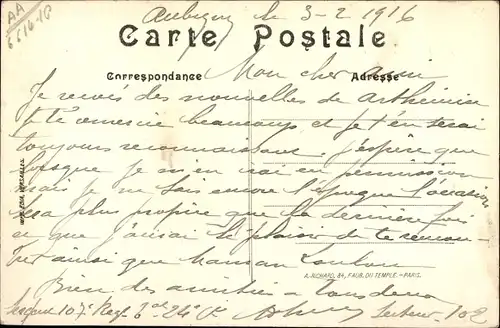 AA
6616-10
Aubigny le 3-2 1916
Carte Postale
Correspondance
Adresse
Mon cher ami
Je reçois des nouvelles de
te remercie beaucoup et je t'en serai
toujours reconnaissant j'espère que
lorsque je m'en irai en permission
mais je ne sais encore l'époque l'occasion
sera plus propice que la dernière fois
et que j'aurai le plaisir de te rencon
trer ainsi que Maman
Bien des amitiés à tous deux
107e 24e Secteur 102
A. RICHARD, 84, FAUB. DU TEMPLE. - PARIS.